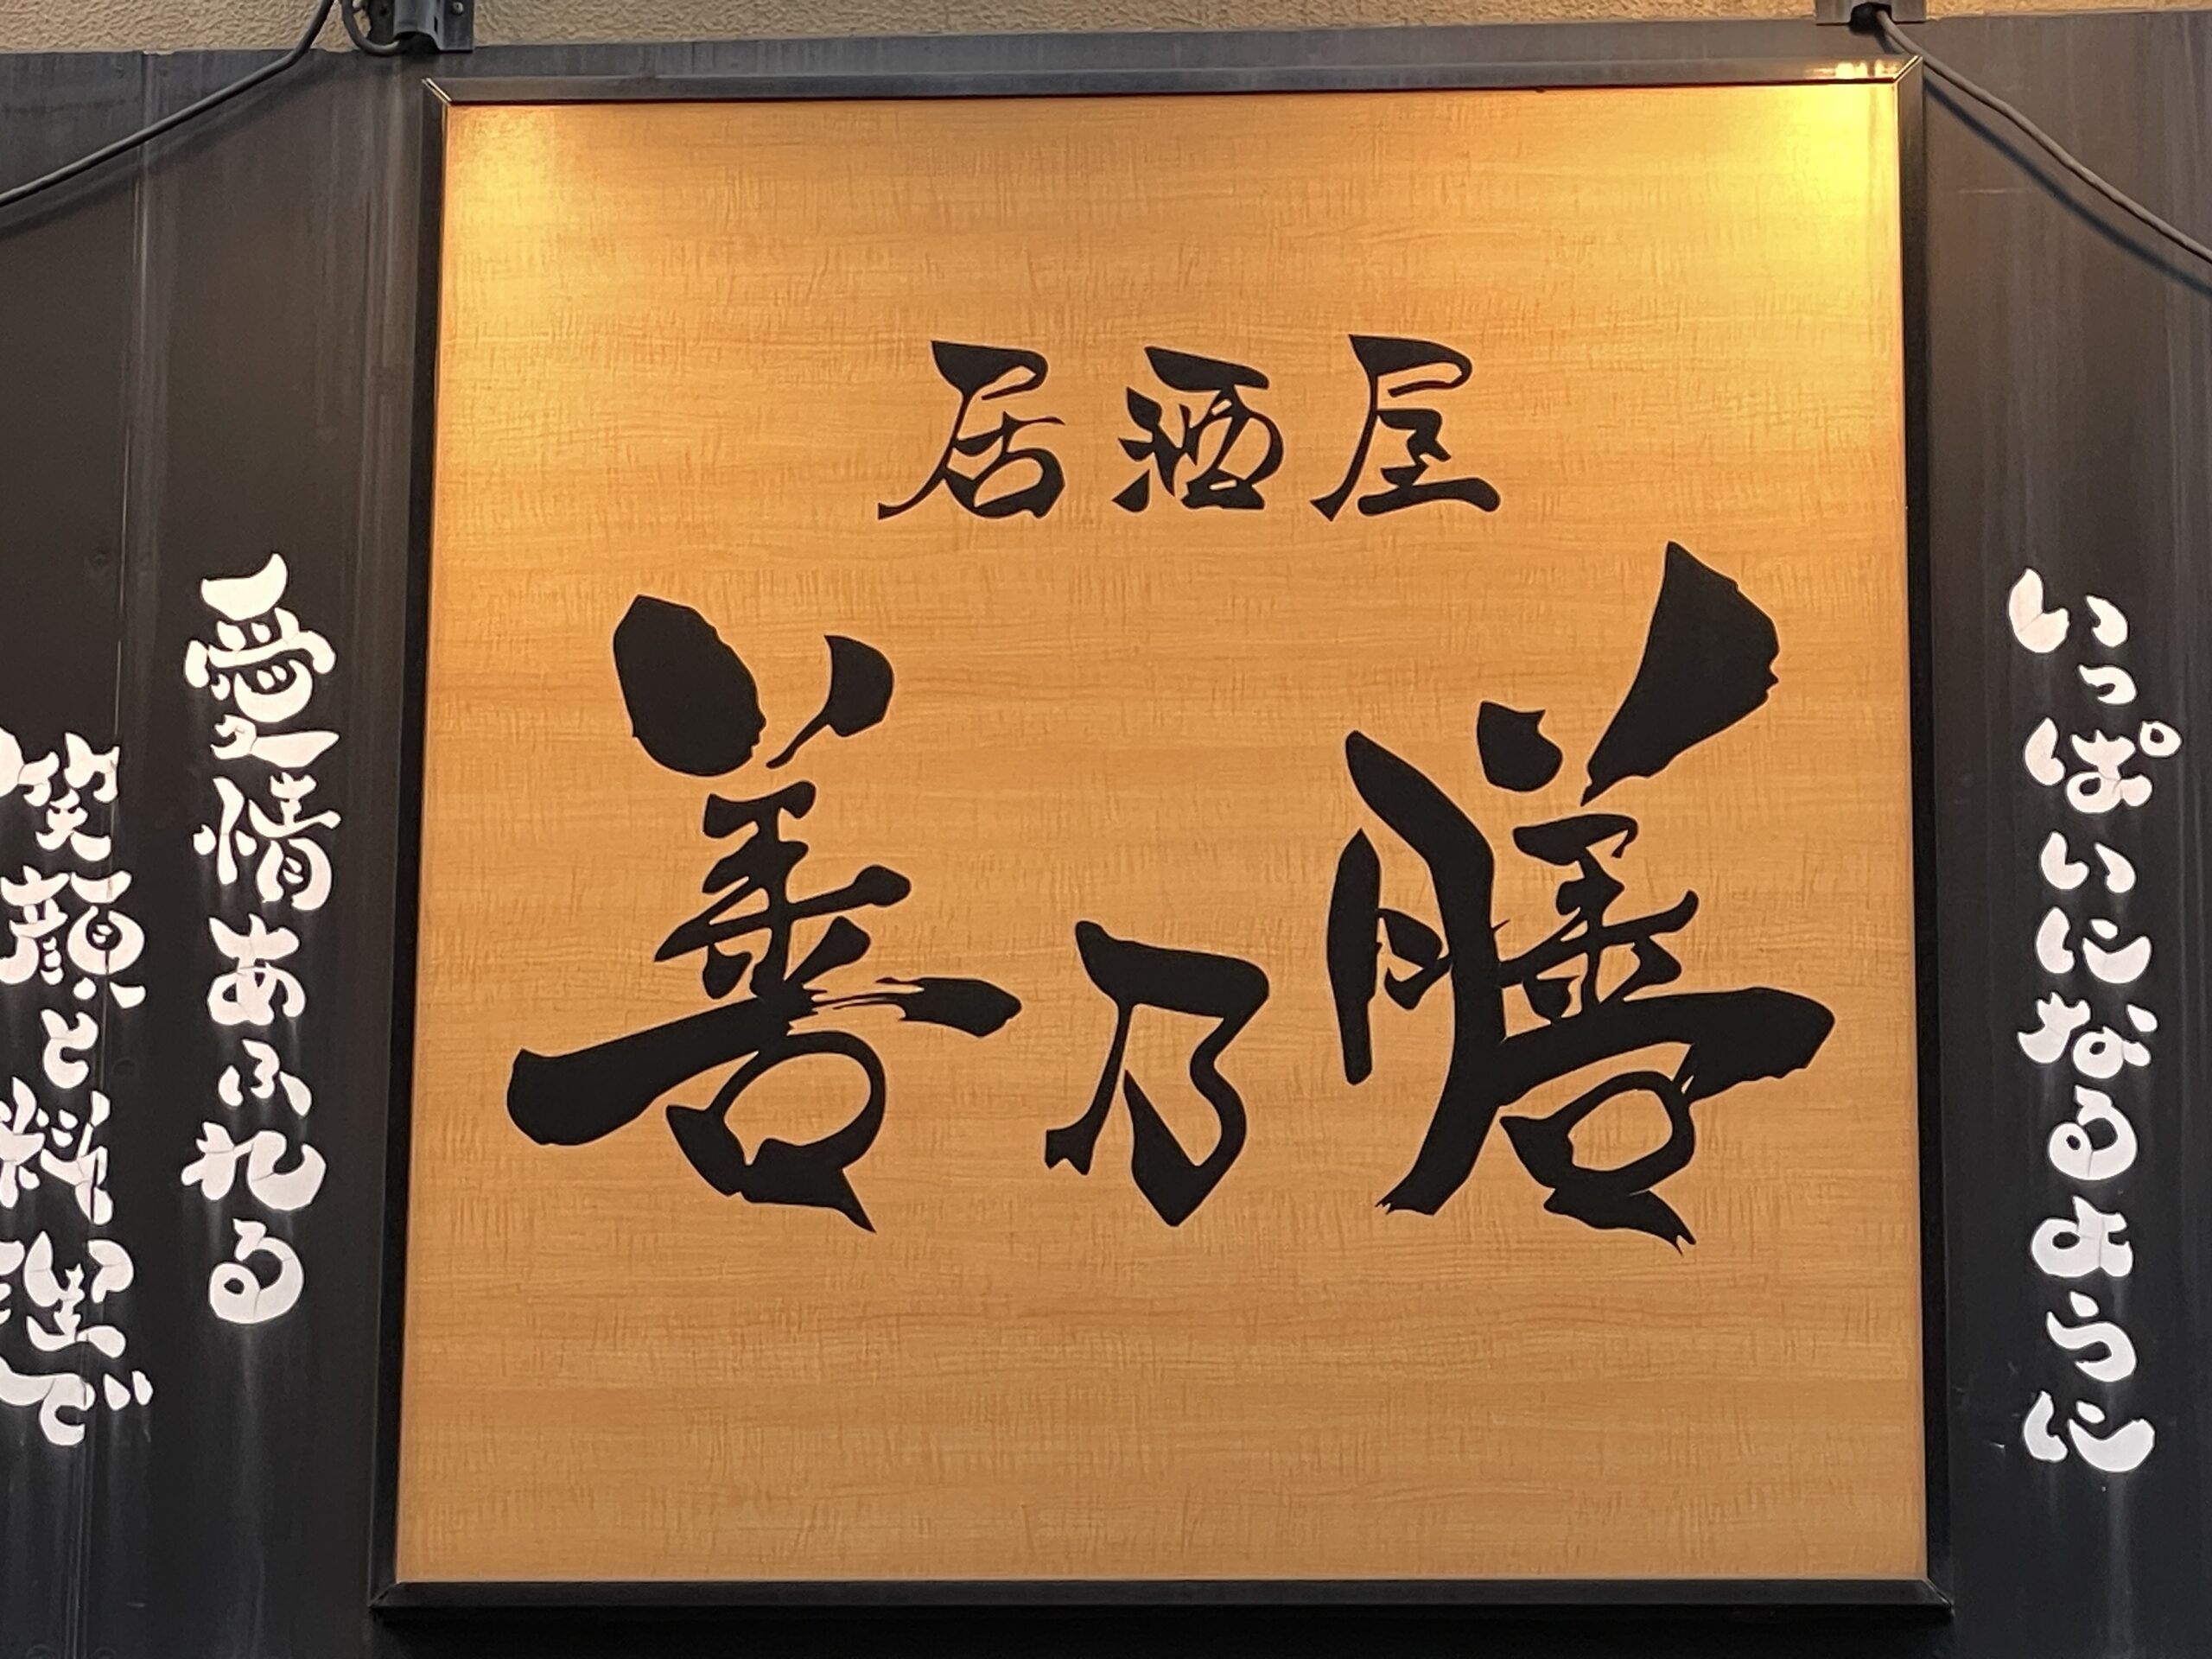 居酒屋
善乃膳
いっぱいになるように
愛情あふれる
笑顔と料理で